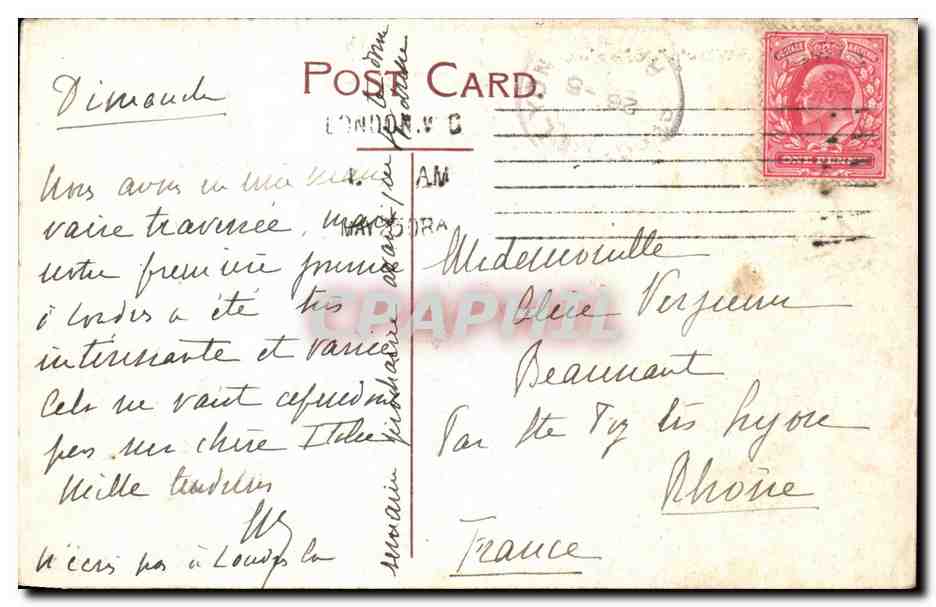 Dimanche
POST CARD.
LONDON. W C
AM
MAY 25 08
POSTAGE REVENUE
ONE PENNY
Nous avons eu une
vaise traversée, mais
notre première journée
à Londres a été très
intéressante et variée
Cela ne vaut cependant
pas ma chère Italie
Mille tendresses
N'écris pas à Londres la
semaine prochaine
Mademoiselle
Beaunant
Par Ste Foy lès Lyon
Rhône
France
CPAPHIL